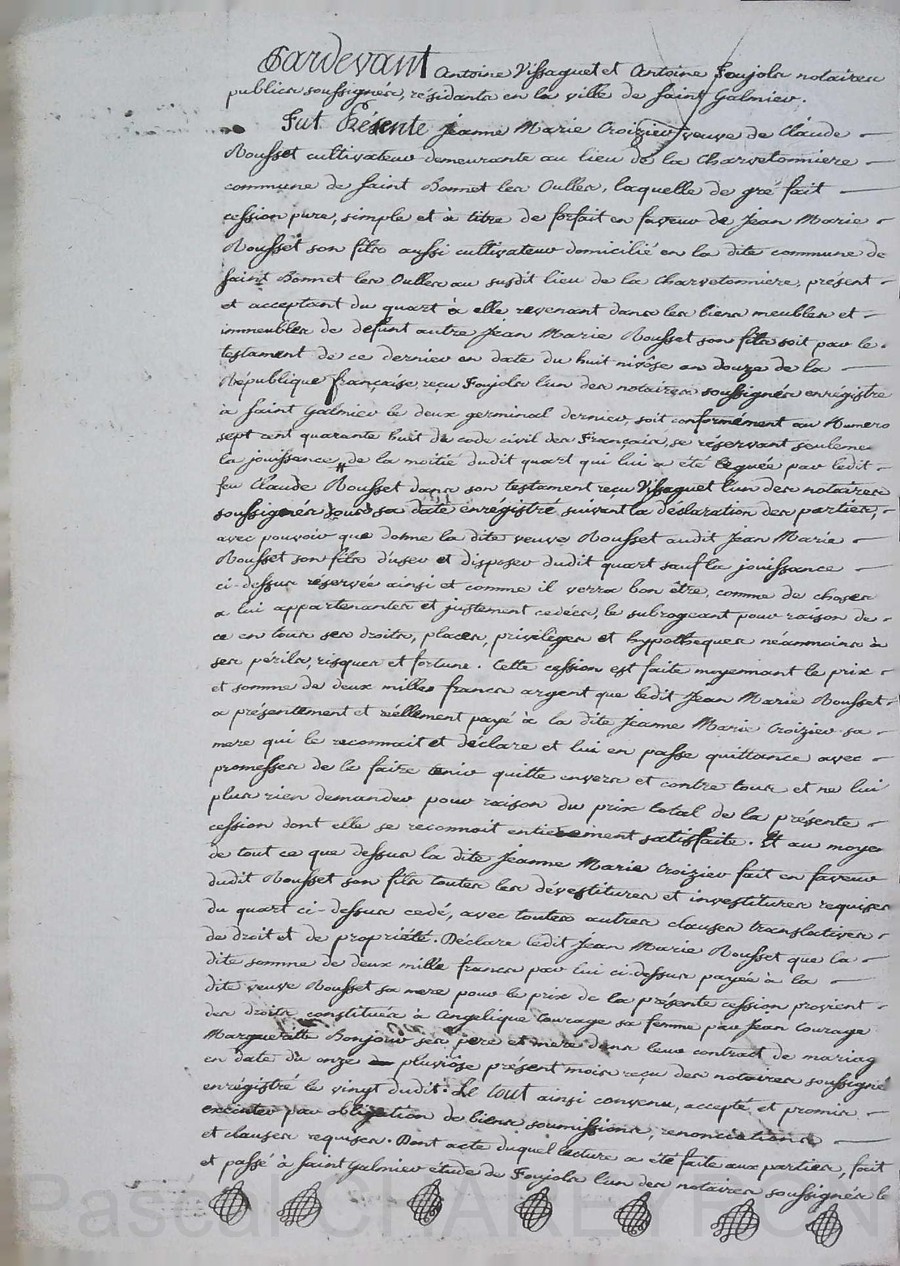 Pardevant Antoine Vissaguet et Antoine Foujols notaires
publics soussignés, résidants en la ville de Saint Galmier.
Fut Présente Jeanne Marie Croizier veuve de Claude
Rousset cultivateur demeurante au lieu de la Charvetonniere
commune de Saint Bonnet les Oulles, laquelle de gré fait
cession pure, simple et à titre de forfait en faveur de Jean Marie
Rousset son fils aussi cultivateur domicilié en la dite commune de
Saint Bonnet les Oulles au susdit lieu de la Charvetonniere, présent
et acceptant du quart à elle revenant dans les biens meubles et
immeubles de defunt autre Jean Marie Rousset son fils soit par le
testament de ce dernier en date du huit nivôse an douze de la
République française, reçu Foujols l'un des notaires soussignés enrégistré
à Saint Galmier le deux germinal dernier, soit conformément au Numero
sept cent quarante huit du code civil des Français, se réservant seuleme
la jouissance de la moitié dudit quart qui lui a été leguée par ledit
feu Claude Rousset dans son testament reçu Vissaguet l'un des notaires
soussignés sous sa date enrégistré suivant la déclaration des parties,
avec pouvoir que donne la dite veuve Rousset audit Jean Marie
Rousset son fils d'user et disposer dudit quart sauf la jouissance
ci-dessus réservée ainsi et comme il verra bon être, comme de choses
a lui appartenantes et justement cedées, le subrogeant pour raison de
ce en tous ses droits, places, privilèges et hypotheques néanmoins à
ses périls, risques et fortune. Cette cession est faite moyennant le prix
et somme de deux milles francs argent que ledit Jean Marie Rousset
a présentement et réellement payé à la dite Jeanne Marie Croizier sa
mere qui le reconnait et déclare et lui en passe quittance avec
promesses de le faire tenir quitte envers et contre tous et ne lui
plus rien demander pour raison du prix total de la présente
cession dont elle se reconnoit entierement satisfaite. Et au moyen
de tout ce que dessus la dite Jeanne Marie Croizier fait en faveur
dudit Rousset son fils toutes les dévestitures et investitures requises
du quart ci-dessus cedé, avec toutes autres clauses translatives
de droit et de propriété. Déclare ledit Jean Marie Rousset que la
dite somme de deux mille francs par lui ci-dessus payée à la
dite veuve Rousset sa mere pour le prix de la présente cession provient
des droits constitués à Angelique Courage sa femme par Jean Courage
Margueritte Bonjour ses pere et mere dans leur contract de mariag
en date du onze pluviôse présent mois reçu des notaires soussigné
enrégistré le vingt dudit. Le tout ainsi convenu, accepté et promis
exécuter par obligation de biens soumissions, renonciations
et clauses requises. Dont acte duquel lecture a été faite aux parties, fait
et passé à Saint Galmier etude de Foujols l'un des notaires soussignés le
Pascal CHAREYRON